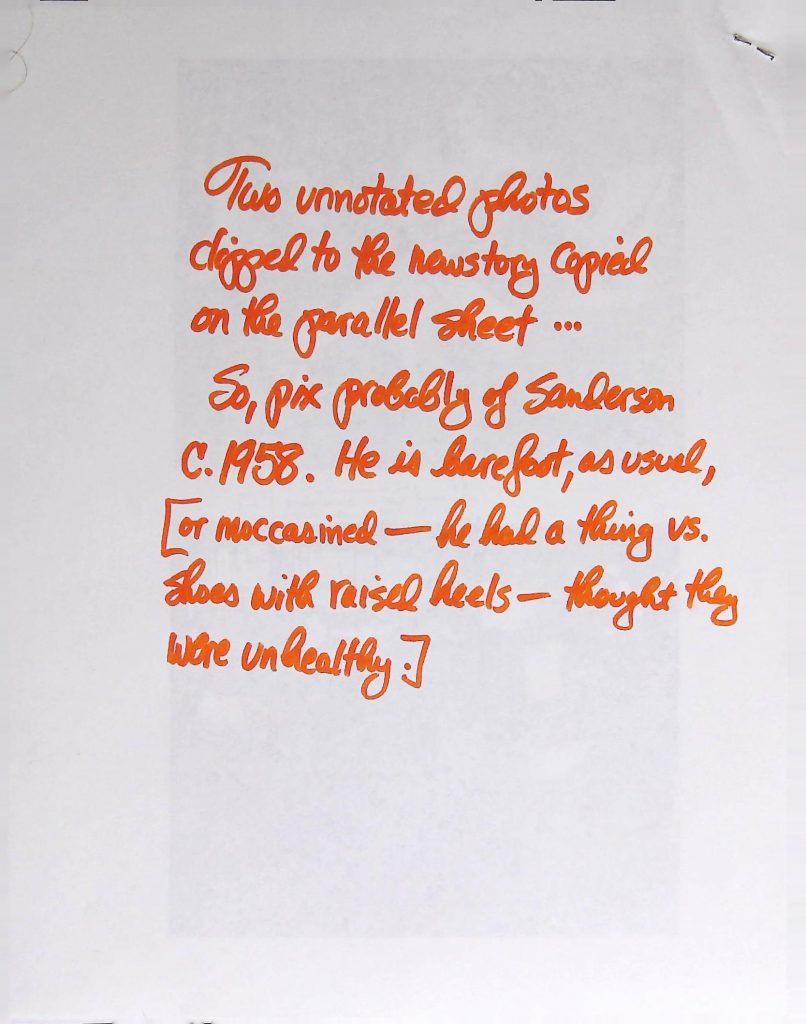 Two unnotated photos
clipped to the newstory copied
on the parallel sheet ...
So, pix probably of Sanderson
C. 1958. He is barefoot, as usual,
[or moccasined — he had a thing vs.
shoes with raised heels — thought they
were unhealthy.]